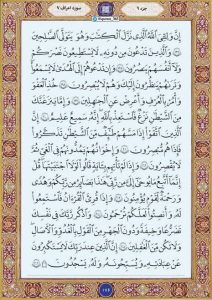 سوره اعراف ۷
جزء ۹
إِنَّ وَلِـِّۧيَ ٱللَّهُ ٱلَّذِي نَزَّلَ ٱلْكِتَٰبَ ۖ وَهُوَ يَتَوَلَّى ٱلصَّٰلِحِينَ
۝ وَٱلَّذِينَ تَدْعُونَ مِن دُونِهِۦ لَا يَسْتَطِيعُونَ نَصْرَكُمْ
وَلَآ أَنفُسَهُمْ يَنصُرُونَ ۝ وَإِن تَدْعُوهُمْ إِلَى ٱلْهُدَىٰ لَا يَسْمَعُوا۟ ۖ
وَتَرَىٰهُمْ يَنظُرُونَ إِلَيْكَ وَهُمْ لَا يُبْصِرُونَ ۝ خُذِ ٱلْعَفْوَ
وَأْمُرْ بِٱلْعُرْفِ وَأَعْرِضْ عَنِ ٱلْجَٰهِلِينَ ۝ وَإِمَّا يَنزَغَنَّكَ
مِنَ ٱلشَّيْطَٰنِ نَزْغٌ فَٱسْتَعِذْ بِٱللَّهِ ۚ إِنَّهُۥ سَمِيعٌ عَلِيمٌ ۝ إِنَّ
ٱلَّذِينَ ٱتَّقَوْا۟ إِذَا مَسَّهُمْ طَٰٓئِفٌ مِّنَ ٱلشَّيْطَٰنِ تَذَكَّرُوا۟
فَإِذَا هُم مُّبْصِرُونَ ۝ وَإِخْوَٰنُهُمْ يَمُدُّونَهُمْ فِي ٱلْغَيِّ ثُمَّ
لَا يُقْصِرُونَ ۝ وَإِذَا لَمْ تَأْتِهِم بِـَٔايَةٍ قَالُوا۟ لَوْلَا ٱجْتَبَيْتَهَا ۚ قُلْ
إِنَّمَآ أَتَّبِعُ مَا يُوحَىٰٓ إِلَيَّ مِن رَّبِّي ۚ هَٰذَا بَصَآئِرُ مِن رَّبِّكُمْ وَهُدًى
وَرَحْمَةٌ لِّقَوْمٍ يُؤْمِنُونَ ۝ وَإِذَا قُرِئَ ٱلْقُرْءَانُ فَٱسْتَمِعُوا۟
لَهُۥ وَأَنصِتُوا۟ لَعَلَّكُمْ تُرْحَمُونَ ۝ وَٱذْكُر رَّبَّكَ فِي نَفْسِكَ
تَضَرُّعًا وَخِيفَةً وَدُونَ ٱلْجَهْرِ مِنَ ٱلْقَوْلِ بِٱلْغُدُوِّ وَٱلْءَاصَالِ
وَلَا تَكُن مِّنَ ٱلْغَٰفِلِينَ ۝ إِنَّ ٱلَّذِينَ عِندَ رَبِّكَ لَا يَسْتَكْبِرُونَ
عَنْ عِبَادَتِهِۦ وَيُسَبِّحُونَهُۥ وَلَهُۥ يَسْجُدُونَ ۩ ۝
۱۷۶